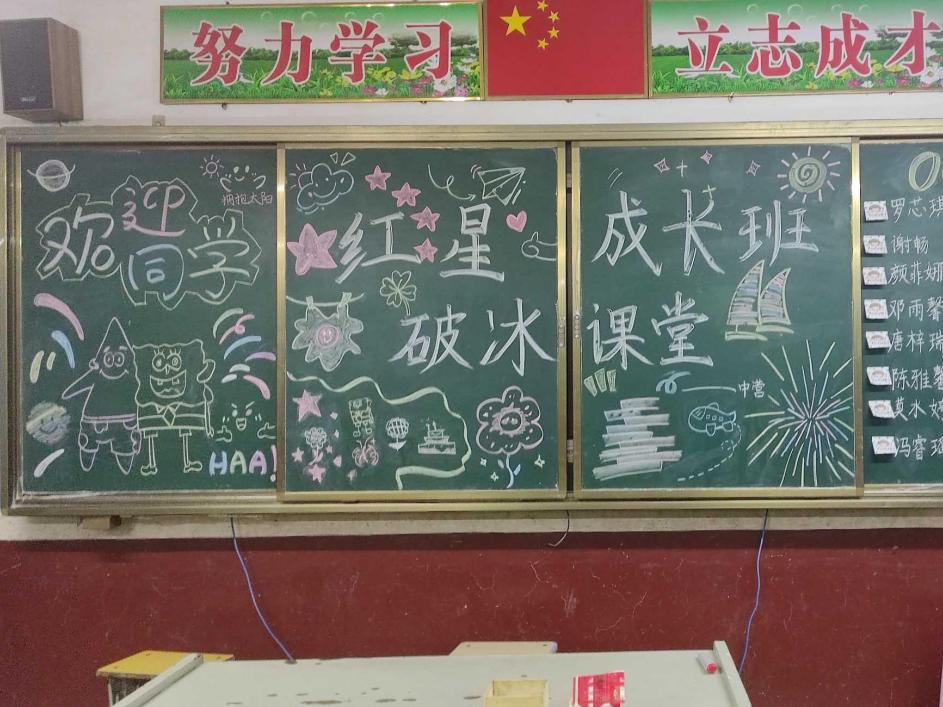 努力学习
立志成才
欢迎
同学
拥抱太阳
HAA!
红星
破冰
成长班
课堂
中营
罗芯琪
谢畅
颜菲妍
邓雨馨
唐梓瑞
陈雅馨
黄水
冯睿